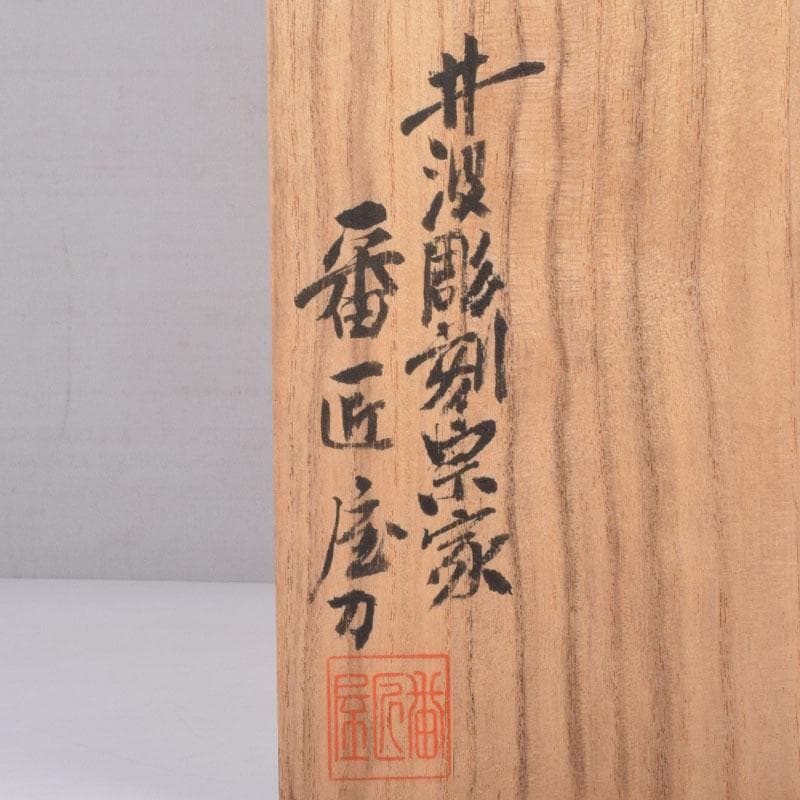 井波彫刻宗家
番匠屋刀
番匠屋